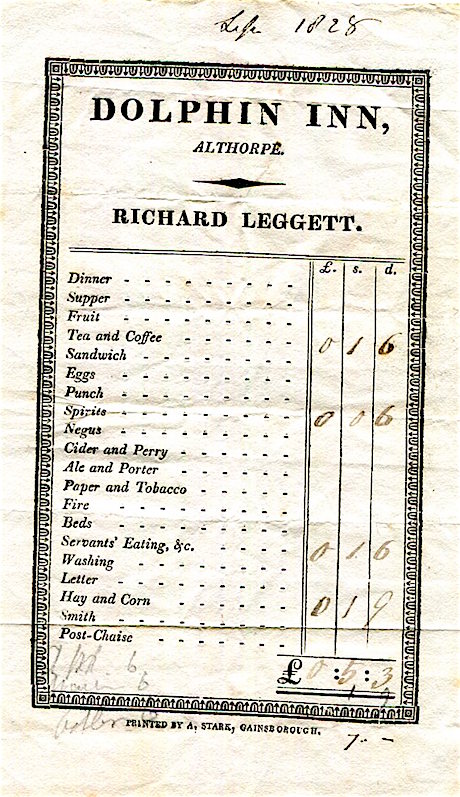 1828
DOLPHIN INN,
ALTHORPE.
RICHARD LEGGETT.
£. s. d.
Dinner
Supper
Fruit
Tea and Coffee 0 1 6
Sandwich
Eggs
Punch
Spirits 0 0 6
Negus
Cider and Perry
Ale and Porter
Paper and Tobacco
Fire
Beds
Servants' Eating, &c. 0 1 6
Washing
Letter
Hay and Corn 0 1 9
Smith
Post-Chaise
6
£ 0 : 5 : 3
6
PRINTED BY A. STARK, GAINSBOROUGH.
7 - –